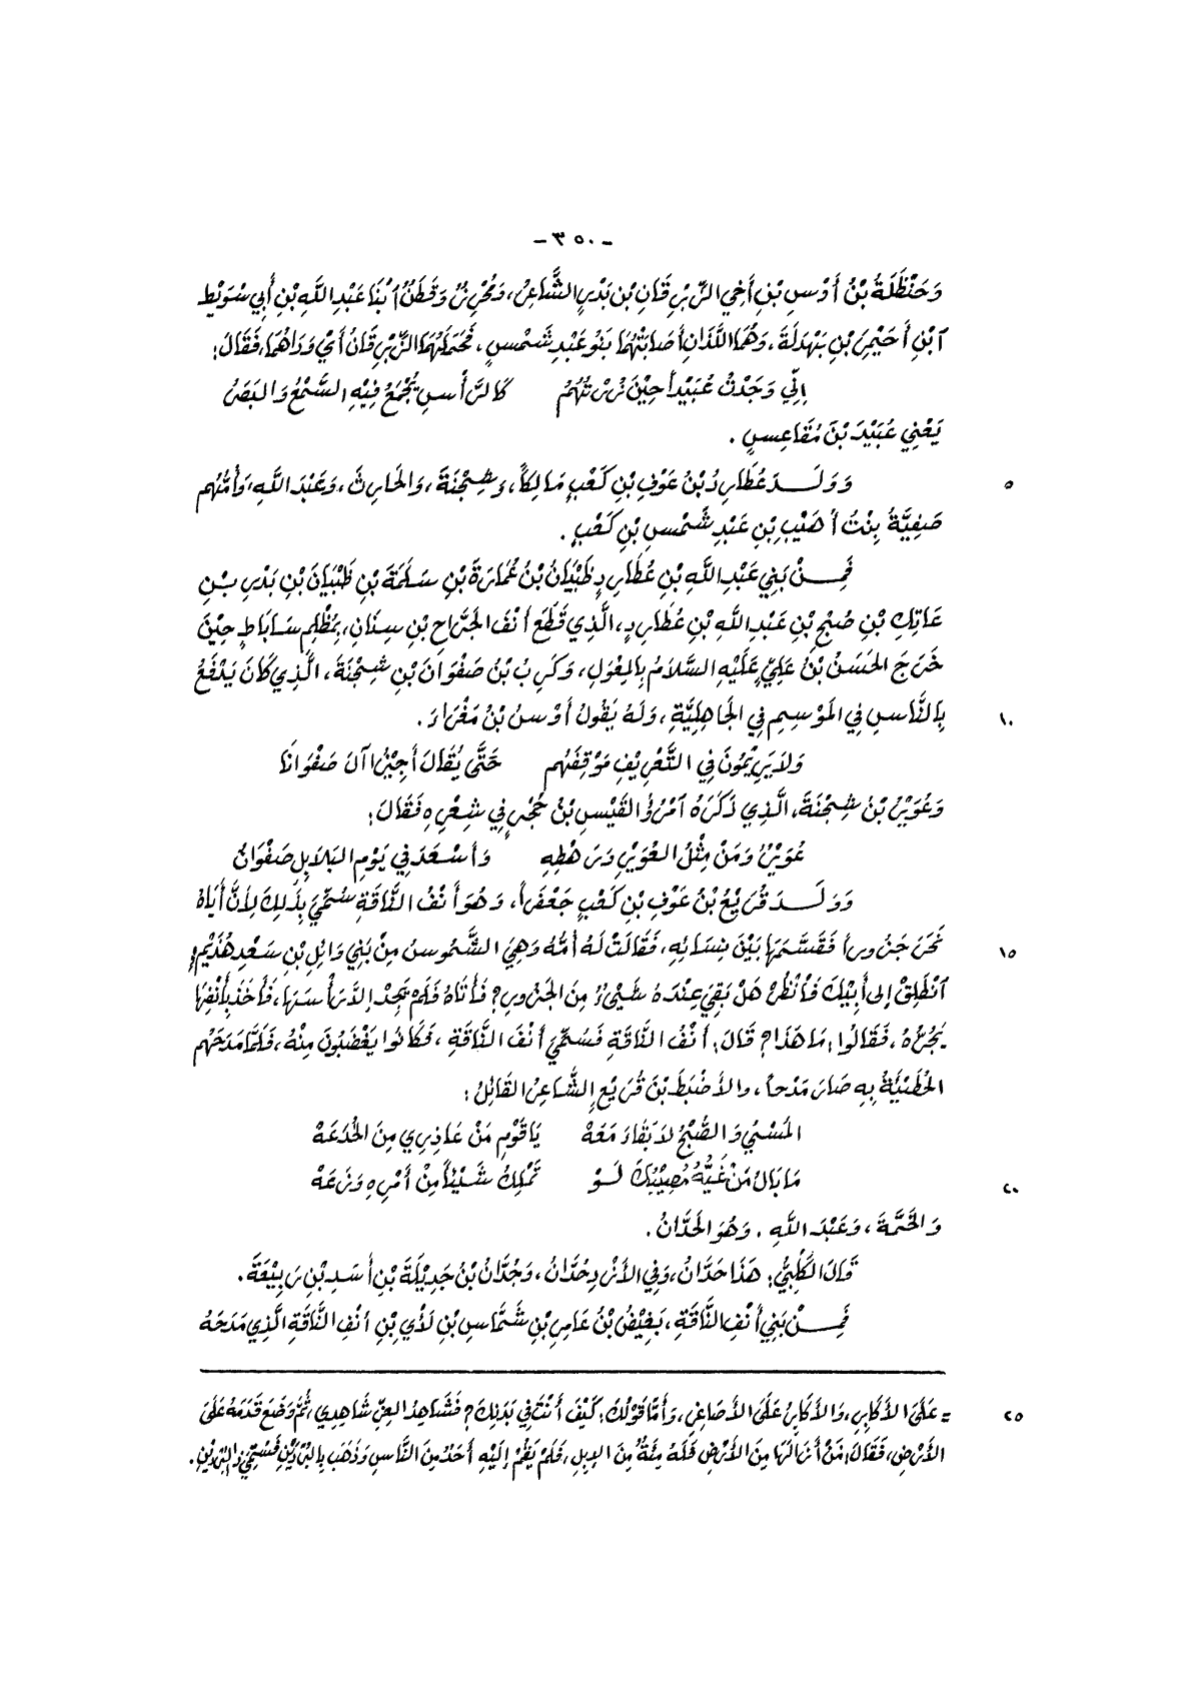 - ٣٥٠ -
وَحَنْظَلَةُ بْنُ أَوْسِ بْنِ أَخِي الزِّبْرِقَانِ بْنِ بَدْرٍ الشَّاعِرُ، وَمُحْرِزٌ وَقَطَنٌ ٱبْنَا عَبْدِ اللَّهِ بْنِ أَبِي سُوَيْطِ
ٱبْنِ أُحَيْمِرَ بْنِ بَهْدَلَةَ، وَهُمَا اللَّذَانِ أَصَابَتْهُمَا بَنُو عَبْدِ شَمْسٍ، فَحَمَلَهُمَا الزِّبْرِقَانُ أَيْ وَدَاهُمَا، فَقَالَ:
إِنِّي وَجَدْتُ عُبَيْداً حِيْنَ زُرْتُهُمُ كَالرَّأْسِ يُجْمَعُ فِيْهِ السَّمْعُ وَالبَصَرُ
يَعْنِي عُبَيْدَ بْنَ مُقَاعِسٍ .
وَوَلَــدَ عُطَارِدُ بْنُ عَوْفِ بْنِ كَعْبٍ مَالِكاً، وَشِجْنَةَ، وَالحَارِثَ، وَعَبْدَ اللَّهِ، وَأُمُّهُم ٥
صَفِيَّةُ بِنْتُ أُهَيْبِ بْنِ عَبْدِ شَمْسِ بْنِ كَعْبٍ .
فَمِــنْ بَنِي عَبْدِ اللَّهِ بْنِ عُطَارِدٍ ظَبْيَانُ بْنُ عُمَارَةَ بْنِ سَلَمَةَ بْنِ ظَبْيَانَ بْنِ بَدْرِ بْــنِ
عَاتِكِ بْنِ صُبْحِ بْنِ عَبْدِ اللَّهِ بْنِ عُطَارِدٍ، الَّذِي قَطَعَ أَنْفَ الجَرَّاحِ بْنِ سِنَانٍ، بِمُظْلِمِ سَابَاطٍ حِيْنَ
خَرَجَ الحَسَنُ بْنُ عَلِيٍّ عَلَيْهِ السَّلَامُ بِالمِغْوَلِ، وَكَرِبُ بْنُ صَفْوَانَ بْنِ شِجْنَةَ، الَّذِي كَانَ يَدْفَعُ
بِالنَّاسِ فِي المَوْسِمِ فِي الجَاهِلِيَّةِ، وَلَهُ يَقُولُ أَوْسُ بْنُ مَغْرَاءَ . ١٠
وَلَا يَرِيْمُونَ فِي التَّعْرِيْفِ مَوْقِفَهُم حَتَّى يُقَالَ أَجِيْزُوا آلَ صَفْوَانَا
وَعُوَيْرُ بْنُ شِجْنَةَ، الَّذِي ذَكَرَهُ ٱمْرُؤُ القَيْسِ بْنُ حُجْرٍ فِي شِعْرِهِ فَقَالَ:
عُوَيْرٌ وَمَنْ مِثْلُ العُوَيْرِ وَرَهْطِهِ وَأَسْعَدَ فِي يَوْمِ البَلَابِلِ صَفْوَانُ
وَوَلَــدَ قُرَيْعُ بْنُ عَوْفِ بْنِ كَعْبٍ جَعْفَراً، وَهُوَ أَنْفُ النَّاقَةِ سُمِّيَ بِذَلِكَ لِأَنَّ أَبَاهُ
نَحَرَ جَزُوراً فَقَسَّمَهَا بَيْنَ نِسَائِهِ، فَقَالَتْ لَهُ أُمُّهُ وَهِيَ الشَّمُوسُ مِنْ بَنِي وَائِلِ بْنِ سَعْدِ هُذَيْمٍ: ١٥
ٱنْطَلِقْ إِلَى أَبِيْكَ فَٱنْظُرْ هَلْ بَقِيَ عِنْدَهُ شَيْءٌ مِنَ الجَزُورِ؟ فَأَتَاهُ فَلَمْ يَجِدْ إِلَّا رَأْسَهَا، فَأَخَذَ بِأَنْفِهَا
يَجُرُّهُ، فَقَالُوا: مَا هَذَا؟ قَالَ: أَنْفُ النَّاقَةِ فَسُمِّيَ أَنْفَ النَّاقَةِ، فَكَانُوا يَغْضَبُونَ مِنْهُ، فَلَمَّا مَدَحَهُم
الحُطَيْئَةُ بِهِ صَارَ مَدْحاً، وَالأَضْبَطَ بْنَ قُرَيْعٍ الشَّاعِرُ القَائِلُ:
المَسْيُ وَالصُّبْحُ لَا بَقَاءَ مَعَهْ يَا قَوْمِ مَنْ عَاذِرِي مِنَ الخُدَعَهْ
مَا بَالُ مَنْ غَيُّهُ مُصِيْبُكَ لَــوْ تَمْلِكُ شَيْئاً مِنْ أَمْرِهِ وَزَعَهْ ٢٠
وَالحُمَّةَ، وَعَبْدَ اللَّهِ . وَهُوَ الحَدَّانُ .
قَالَ الكَلْبِيُّ: هَذَا حَدَّانُ، وَفِي الأَزْدِ حُدَّانُ، وَجُدَّانُ بْنُ جَدِيْلَةَ بْنِ أَسَدِ بْنِ رَبِيْعَةَ .
فَمِــنْ بَنِي أَنْفِ النَّاقَةِ، بَغِيْضُ بْنُ عَامِرِ بْنِ شَمَّاسِ بْنِ لَأْيِ بْنِ أَنْفِ النَّاقَةِ الَّذِي مَدَحَهُ
= عَلَى الأَكَابِرِ، وَالأَكَابِرُ عَلَى الأَصَاغِرِ، وَأَمَّا قَوْلُكَ: كَيْفَ أَنْتَ فِي بَدَنِكَ؟ فَشَاهِدُ العِزِّ شَاهِدِي، ثُمَّ وَضَعَ قَدَمَهُ عَلَى ٢٥
الأَرْضِ، فَقَالَ: مَنْ أَزَالَهَا مِنَ الأَرْضِ فَلَهُ مِئَةٌ مِنَ الإِبِلِ، فَلَمْ يَقُمْ إِلَيْهِ أَحَدٌ مِنَ النَّاسِ وَذَهَبَ بِالبُرْدَيْنِ فَسُمِّيَ ذَا البُرْدَيْنِ .